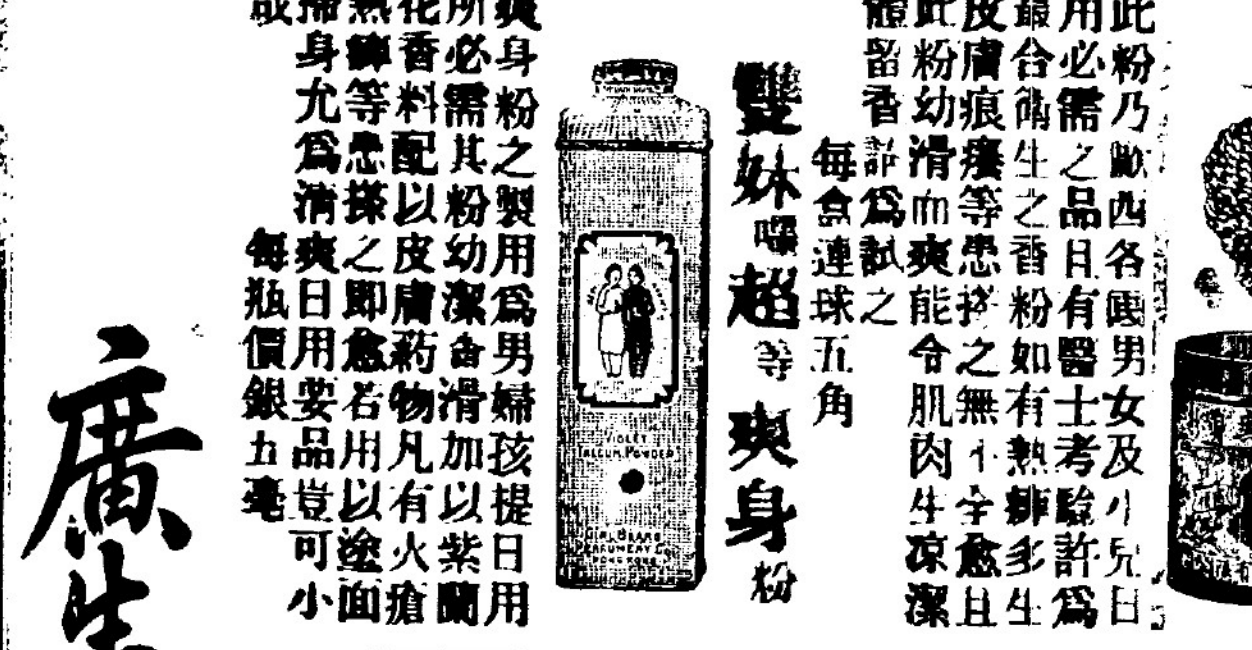 此粉乃歐西各國男女及小兒日
用必需之品日有醫士考驗許爲
最合衛生之香粉如有熱痱多生
皮膚痕癢等患搽之無不全愈且
此粉幼滑而爽能令肌肉生凉潔
體留香請爲試之
每盒連球五角
雙妹嚜超等爽身粉
VIOLET
TALCUM POWDER
GIRL BRAND
PERFUMERY Co
HONG KONG
爽身粉之製用爲男婦孩提日用
所必需其粉幼潔香滑加以紫蘭
花香料配以皮膚葯物凡有火瘡
熱痱等患搽之即愈若用以塗面
掃身允爲清爽日用要品豈可小
每瓶價銀五毫
廣生